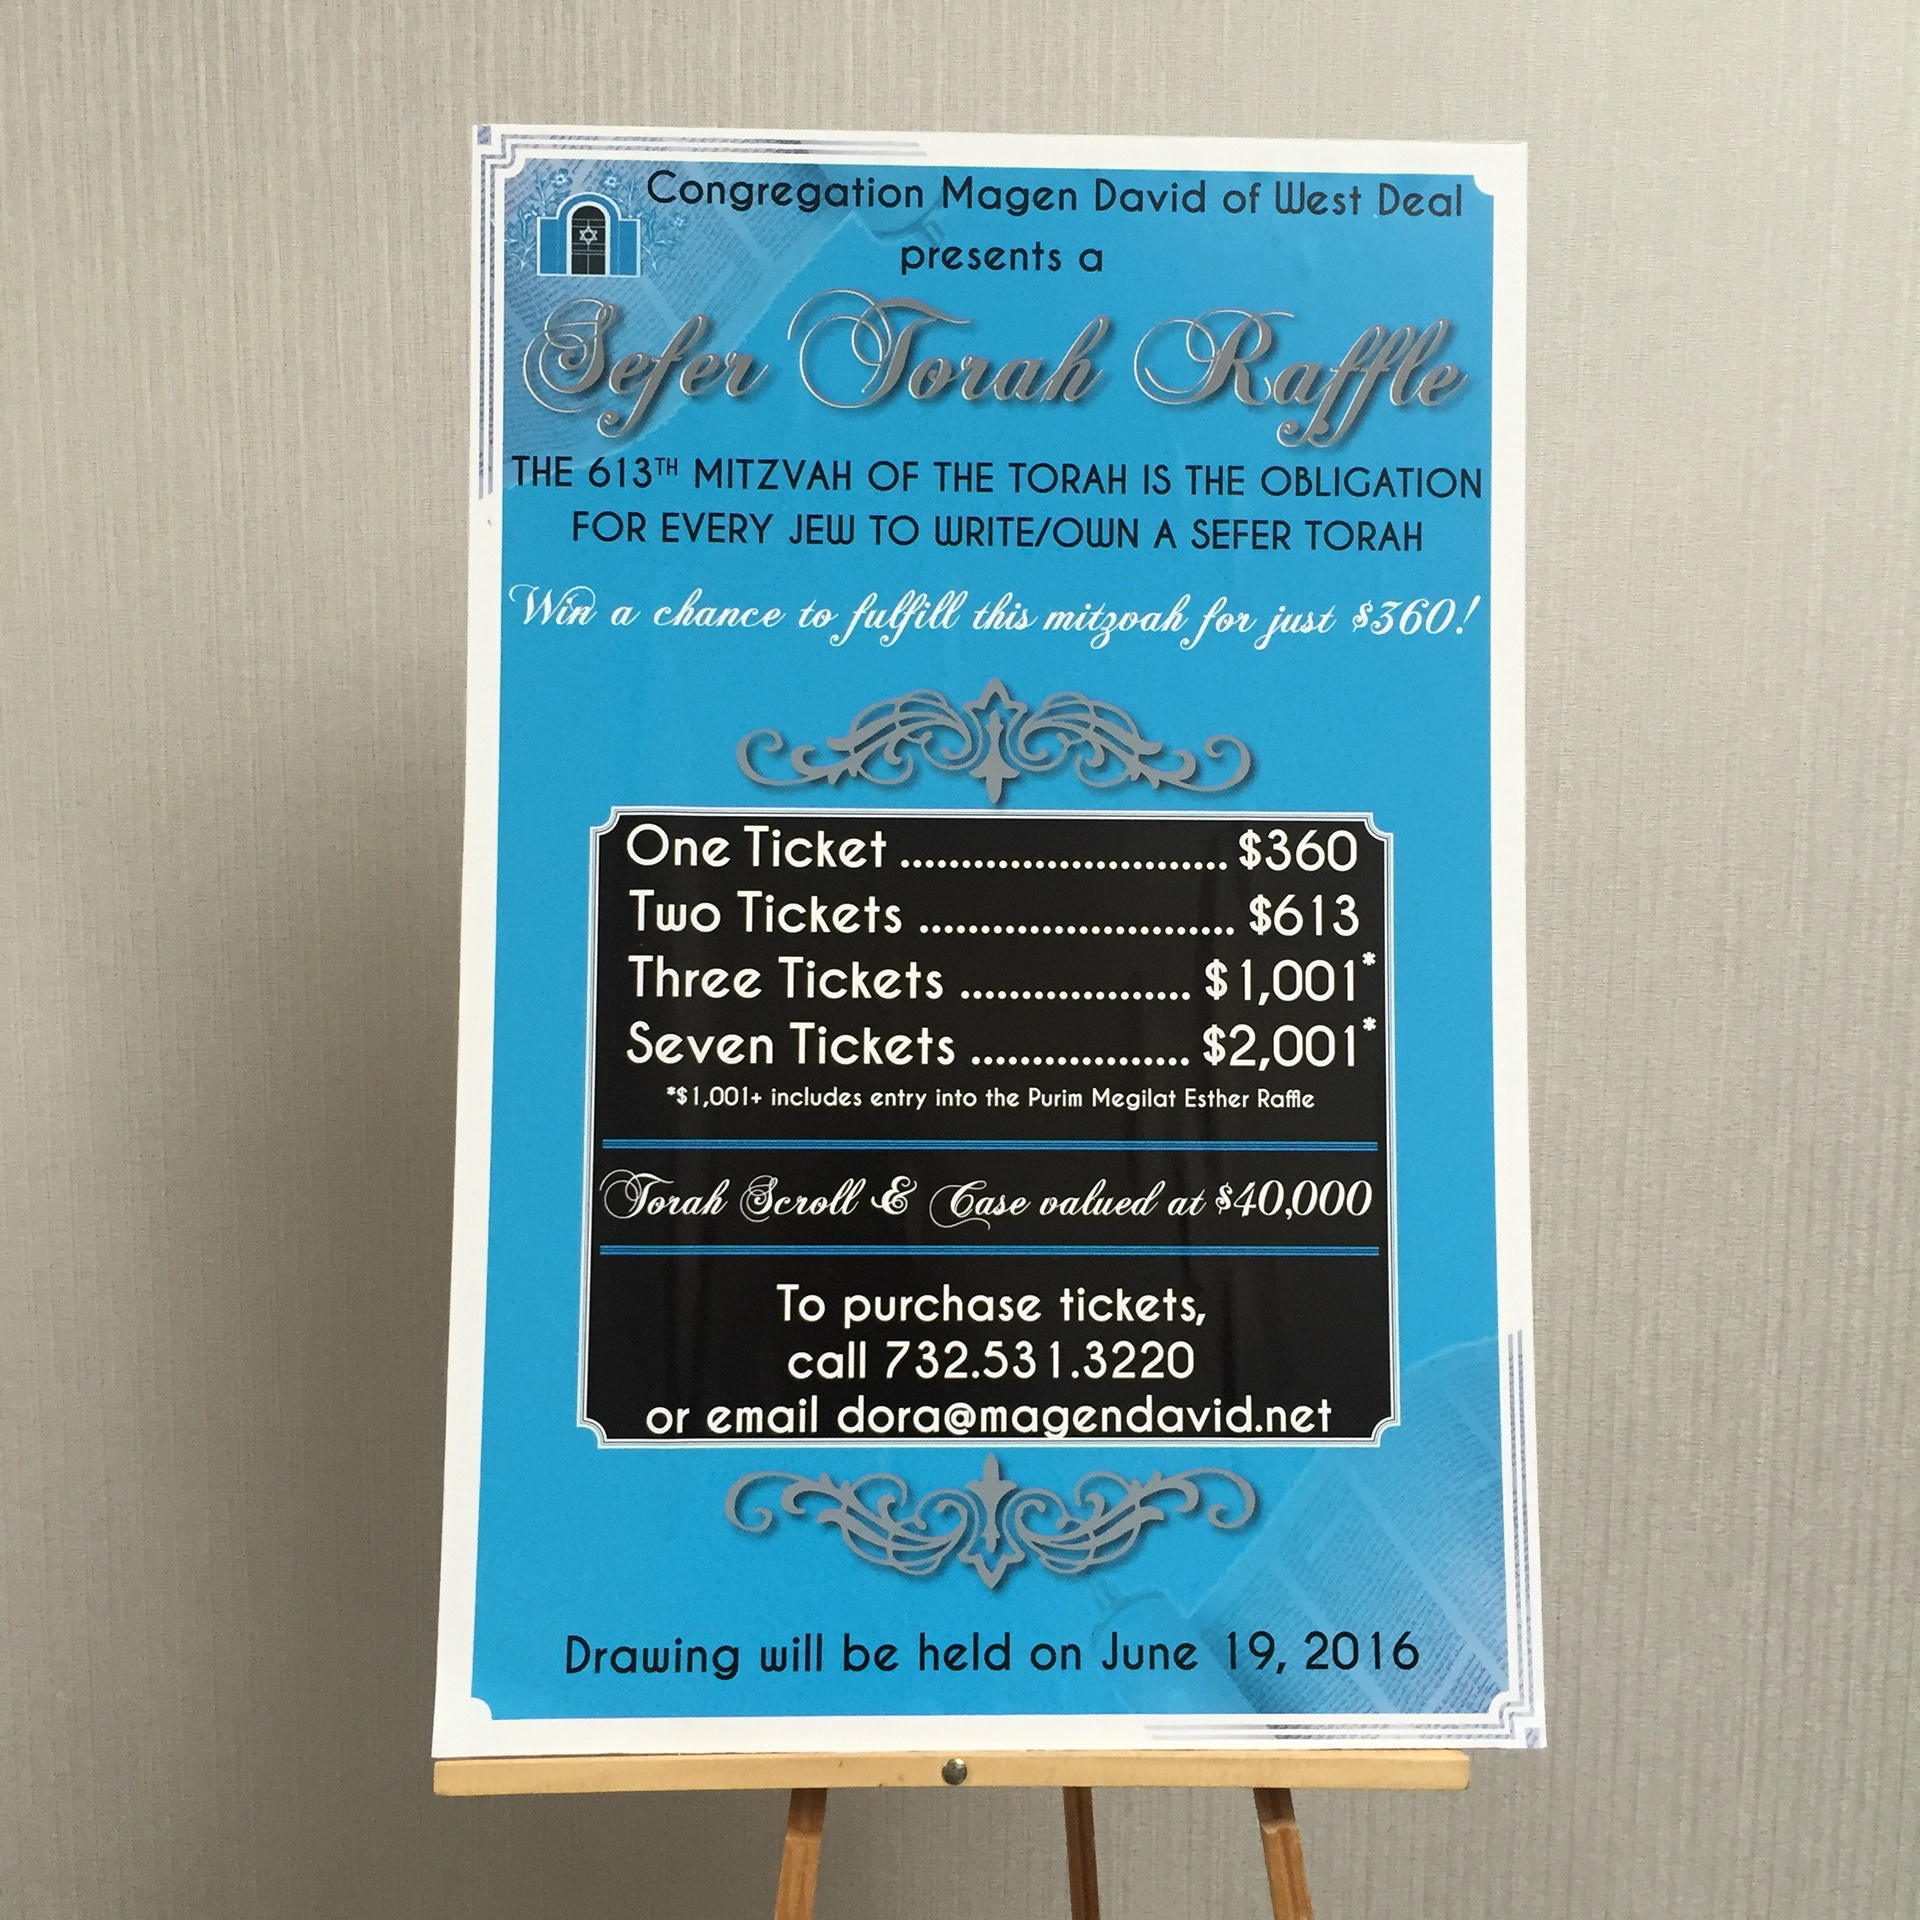 Congregation Magen David of West Deal
presents a
Sefer Torah Raffle
THE 613TH MITZVAH OF THE TORAH IS THE OBLIGATION
FOR EVERY JEW TO WRITE/OWN A SEFER TORAH
Win a chance to fulfill this mitzvah for just $360!
One Ticket ........................... $360
Two Tickets .......................... $613
Three Tickets ................... $1,001*
Seven Tickets .................. $2,001*
*$1,001+ includes entry into the Purim Megilat Esther Raffle
Torah Scroll & Case valued at $40,000
To purchase tickets,
call 732.531.3220
or email dora@magendavid.net
Drawing will be held on June 19, 2016